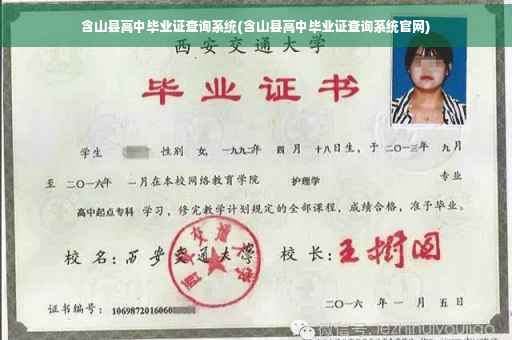 含山县高中毕业证查询系统(含山县高中毕业证查询系统官网)
西安交通大学
毕业证书
学生 性别 女, 一九九二年 四 月 十八日生, 于 二〇一三年 九月
至 二〇一六年 一月在本校网络教育学院 护理学 专业
高中起点专科 学习, 修完教学计划规定的全部课程, 成绩合格, 准予毕业。
校 名: 西安交通大学 校 长: 王树国
西安交通大学
证书编号: 1069872016060
二〇一六 年 一 月 五 日
微信号: jezhinuiyoujiao